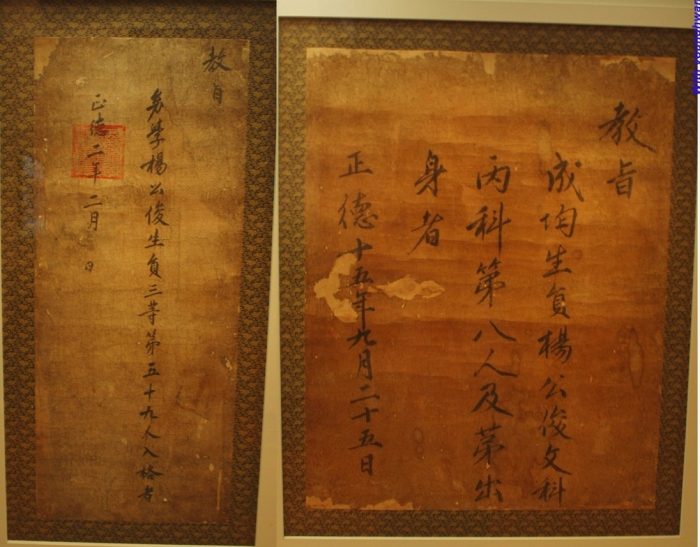 教旨
幼學楊公俊生負三等第五十九人入格者
正德二年二月 日
教旨
成均生負楊公俊文科
丙科第八人及第出
身者
正德十五年九月二十五日